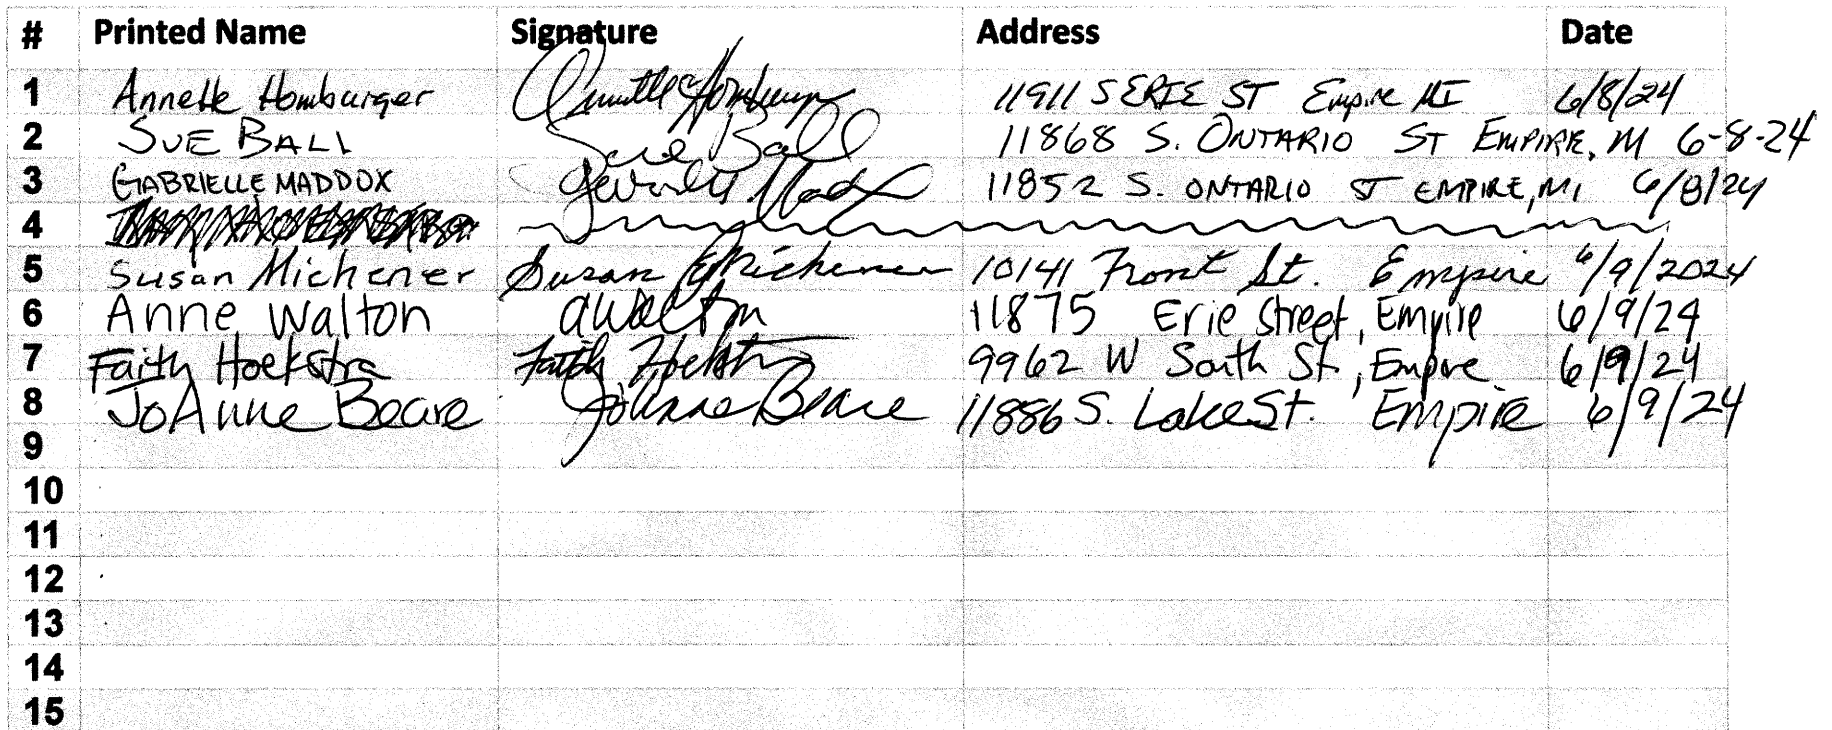 # Printed Name Signature Address Date
1 Annette Homburger Annette Homburger 11911 S ERIE ST Empire MI 6/8/24
2 SUE BALL Sue Ball 11868 S. ONTARIO ST EMPIRE, M 6-8-24
3 GABRIELLE MADDOX 11852 S. ONTARIO ST EMPIRE, MI 6/8/24
4
5 Susan Michener Susan Michener 10141 Front St. Empire 6/9/2024
6 Anne Walton aWalton 11875 Erie Street, Empire 6/9/24
7 Faith Hoekstra Faith Hoekstra 9962 W South St, Empire 6/9/24
8 JoAnne Beare JoAnne Beare 11886 S. Lake St. Empire 6/9/24
9
10
11
12
13
14
15